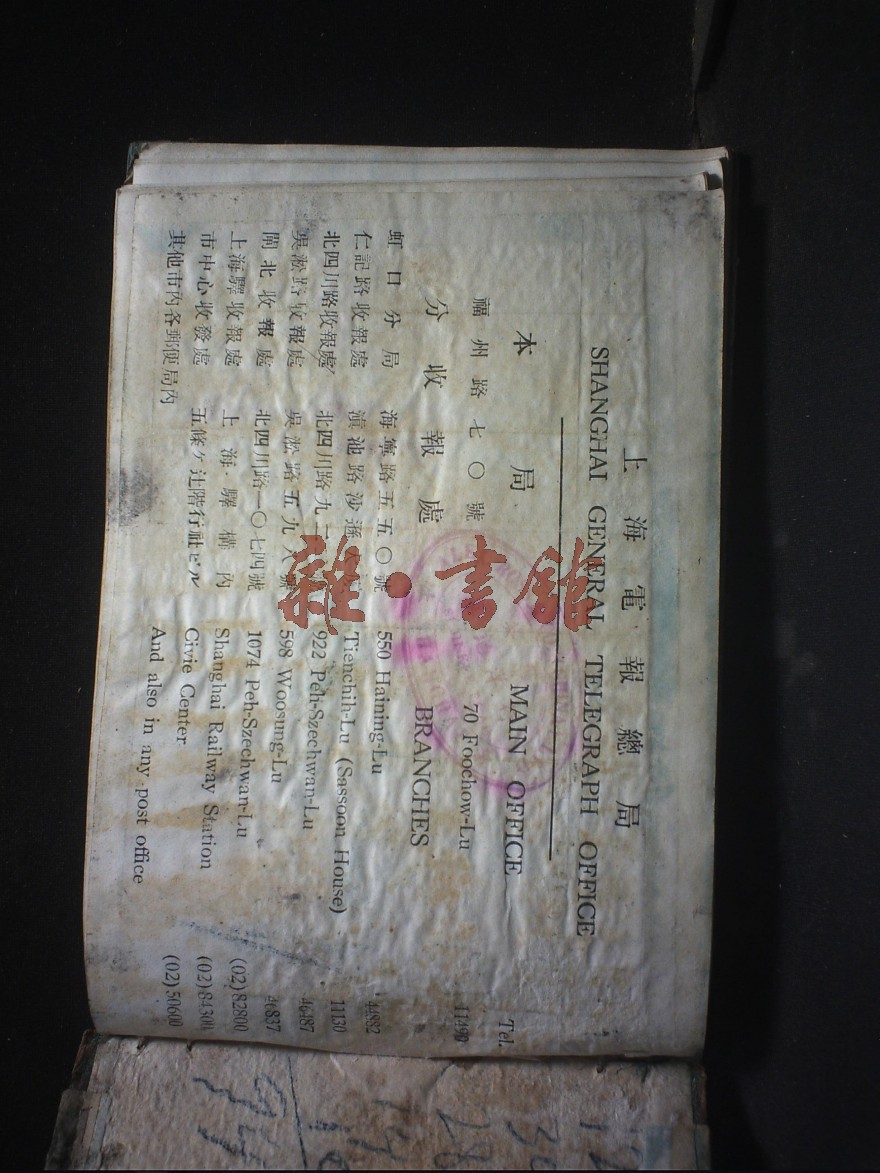 上海電報總局
SHANGHAI GENERAL TELEGRAPH OFFICE
本局 MAIN OFFICE Tel.
福州路七〇號 70 Foochow-Lu
分收報處 BRANCHES
虹口分局 海寧路五五〇號 550 Haining-Lu 44882
仁記路收報處 滇池路沙遜 Tienchih-Lu (Sassoon House) 11130
北四川路收報處 北四川路九二 922 Peh-Szechwan-Lu 46487
吳淞路收報處 吳淞路五九八號 598 Woosung-Lu 46837
閘北收報處 北四川路一〇七四號 1074 Peh-Szechwan-Lu (02)82800
上海驛收報處 上海驛構內 Shanghai Railway Station (02)84300
市中心收發處 五條ケ辻階行社ビル Civie Center (02)50600
其他市內各郵便局內 And also in any post office
雜·書館